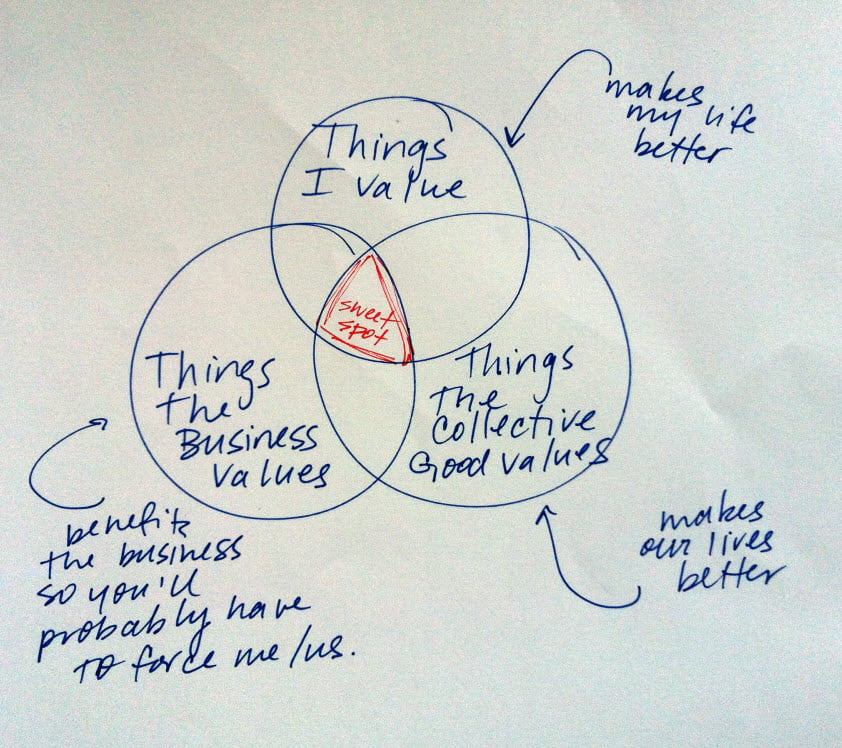 makes
my life
better
Things
I value
sweet
spot
Things
the
Business
values
Things
the
collective
Good values
benefits
the business
so you'll
probably have
to force me/us.
makes
our lives
better